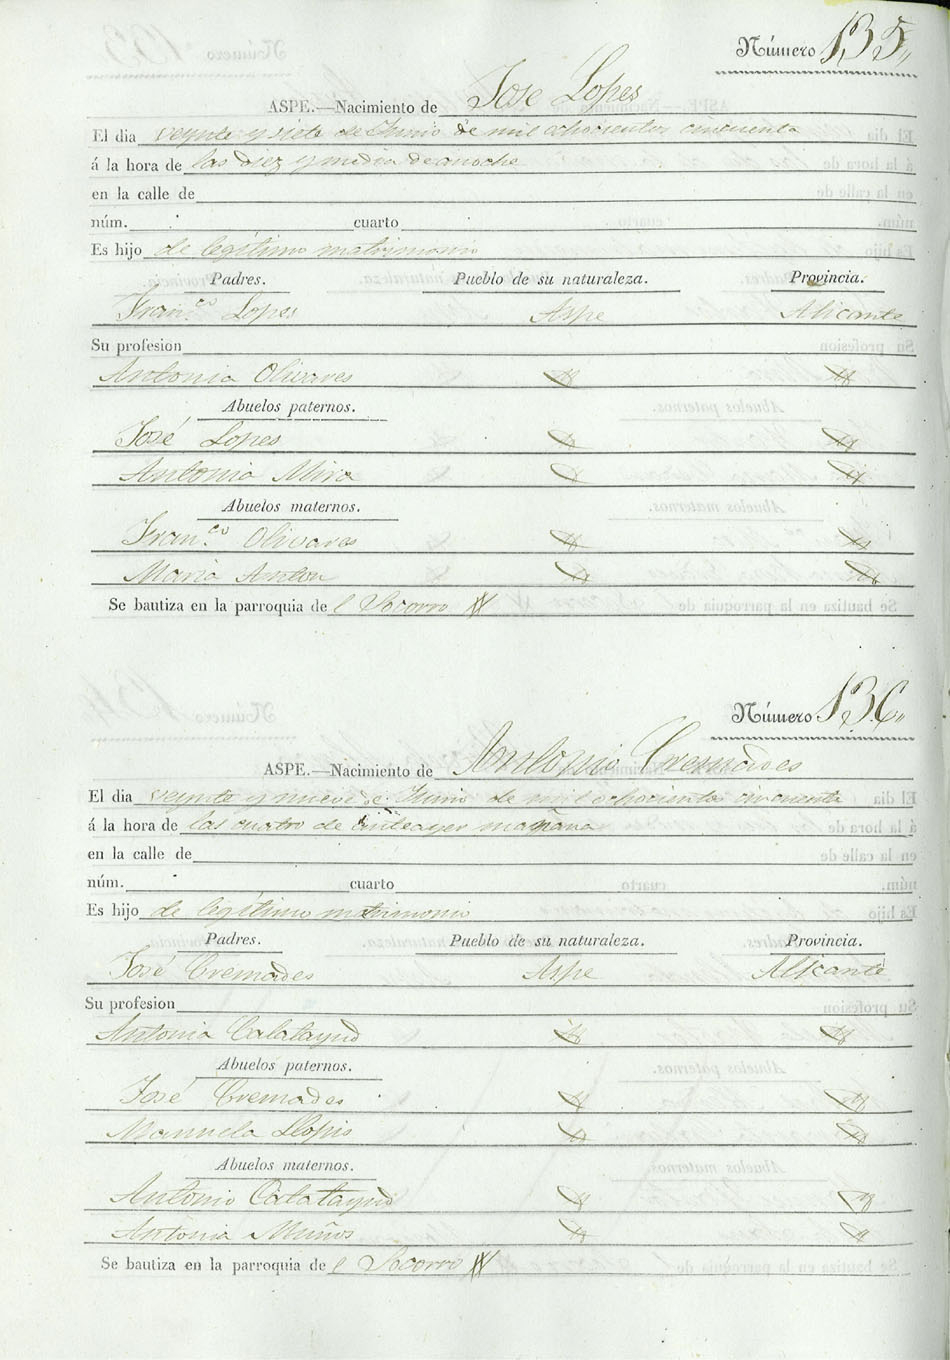 Número 135,,
ASPE.—Nacimiento de Jose Lopes
El dia veynte y siete de Junio de mil echocientos cincuenta
á la hora de las diez y media de anoche
en la calle de
núm. cuarto
Es hijo de legítimo matrimonio
Padres. Pueblo de su naturaleza. Provincia.
Fran.co Lopes Aspe Alicante
Su profesion
Antonia Olivares
Abuelos paternos.
José Lopes
Antonia Mira
Abuelos maternos.
Fran.co Olivares
Maria Anton
Se bautiza en la parroquia de l Socorro
Número 136,,
ASPE.—Nacimiento de Antonio Cremades
El dia veynte y nueve de Junio de mil ochocientos cincuenta
á la hora de las cuatro de mañana
en la calle de
núm. cuarto
Es hijo de legítimo matrimonio
Padres. Pueblo de su naturaleza. Provincia.
José Cremades Aspe Alicante
Su profesion
Antonia Calatayud
Abuelos paternos.
José Cremades
Manuela Llopis
Abuelos maternos.
Antonio Calatayud
Antonia Muños
Se bautiza en la parroquia de l Socorro